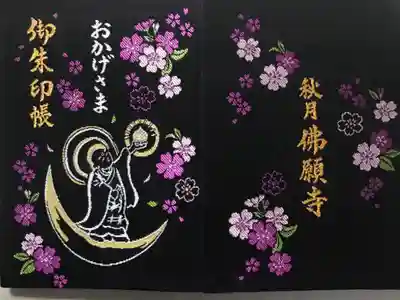 御朱印帳
おかげさま
秋月佛願寺